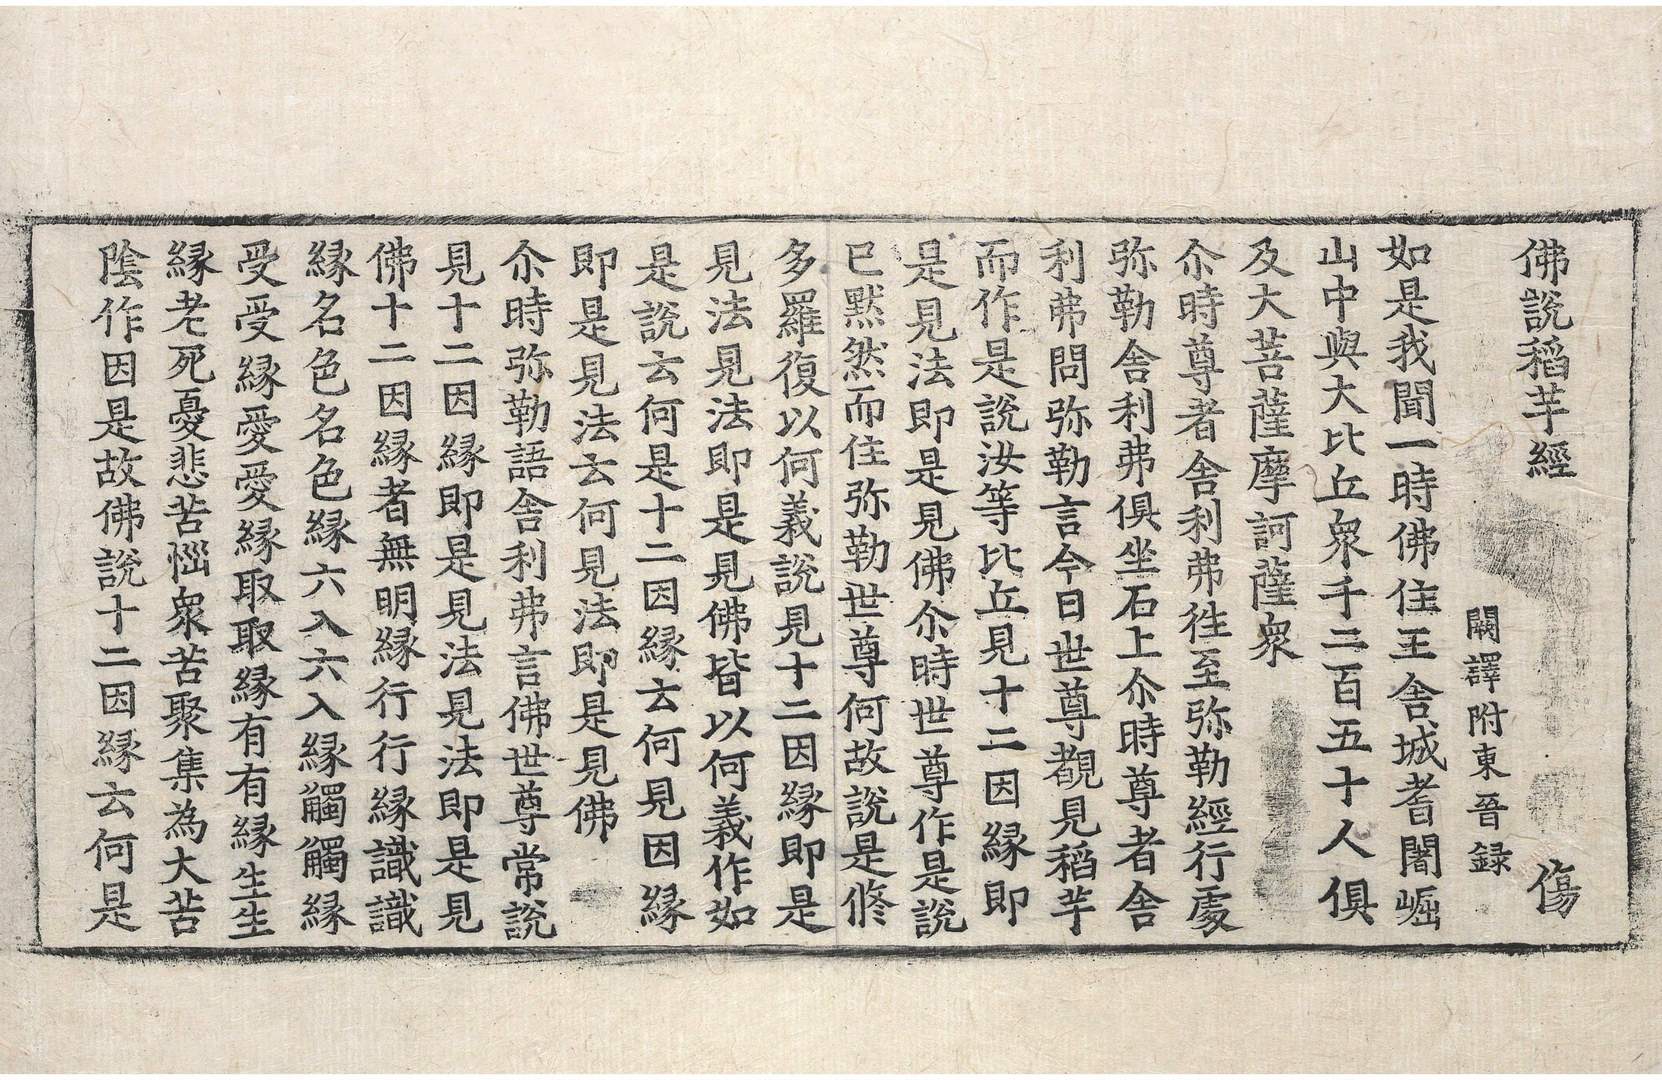 佛說稻芉經 傷
闕譯附東晉録
如是我聞一時佛住王舍城耆闍崛
山中與大比丘衆千二百五十人俱
及大菩薩摩訶薩衆
尒時尊者舍利弗徃至弥勒經行處
弥勒舍利弗俱坐石上尒時尊者舍
利弗問弥勒言今日世尊覩見稻芉
而作是說汝等比丘見十二因縁即
是見法即是見佛尒時世尊作是說
已黙然而住弥勒世尊何故說是修
多羅復以何義說見十二因縁即是
見法見法即是見佛皆以何義作如
是說云何是十二因縁云何見因縁
即是見法云何見法即是見佛
尒時弥勒語舍利弗言佛世尊常說
見十二因縁即是見法見法即是見
佛十二因縁者無明縁行行縁識識
縁名色名色縁六入六入縁觸觸縁
受受縁愛愛縁取取縁有有縁生生
縁老死憂悲苦惱衆苦聚集為大苦
陰作因是故佛說十二因縁云何是